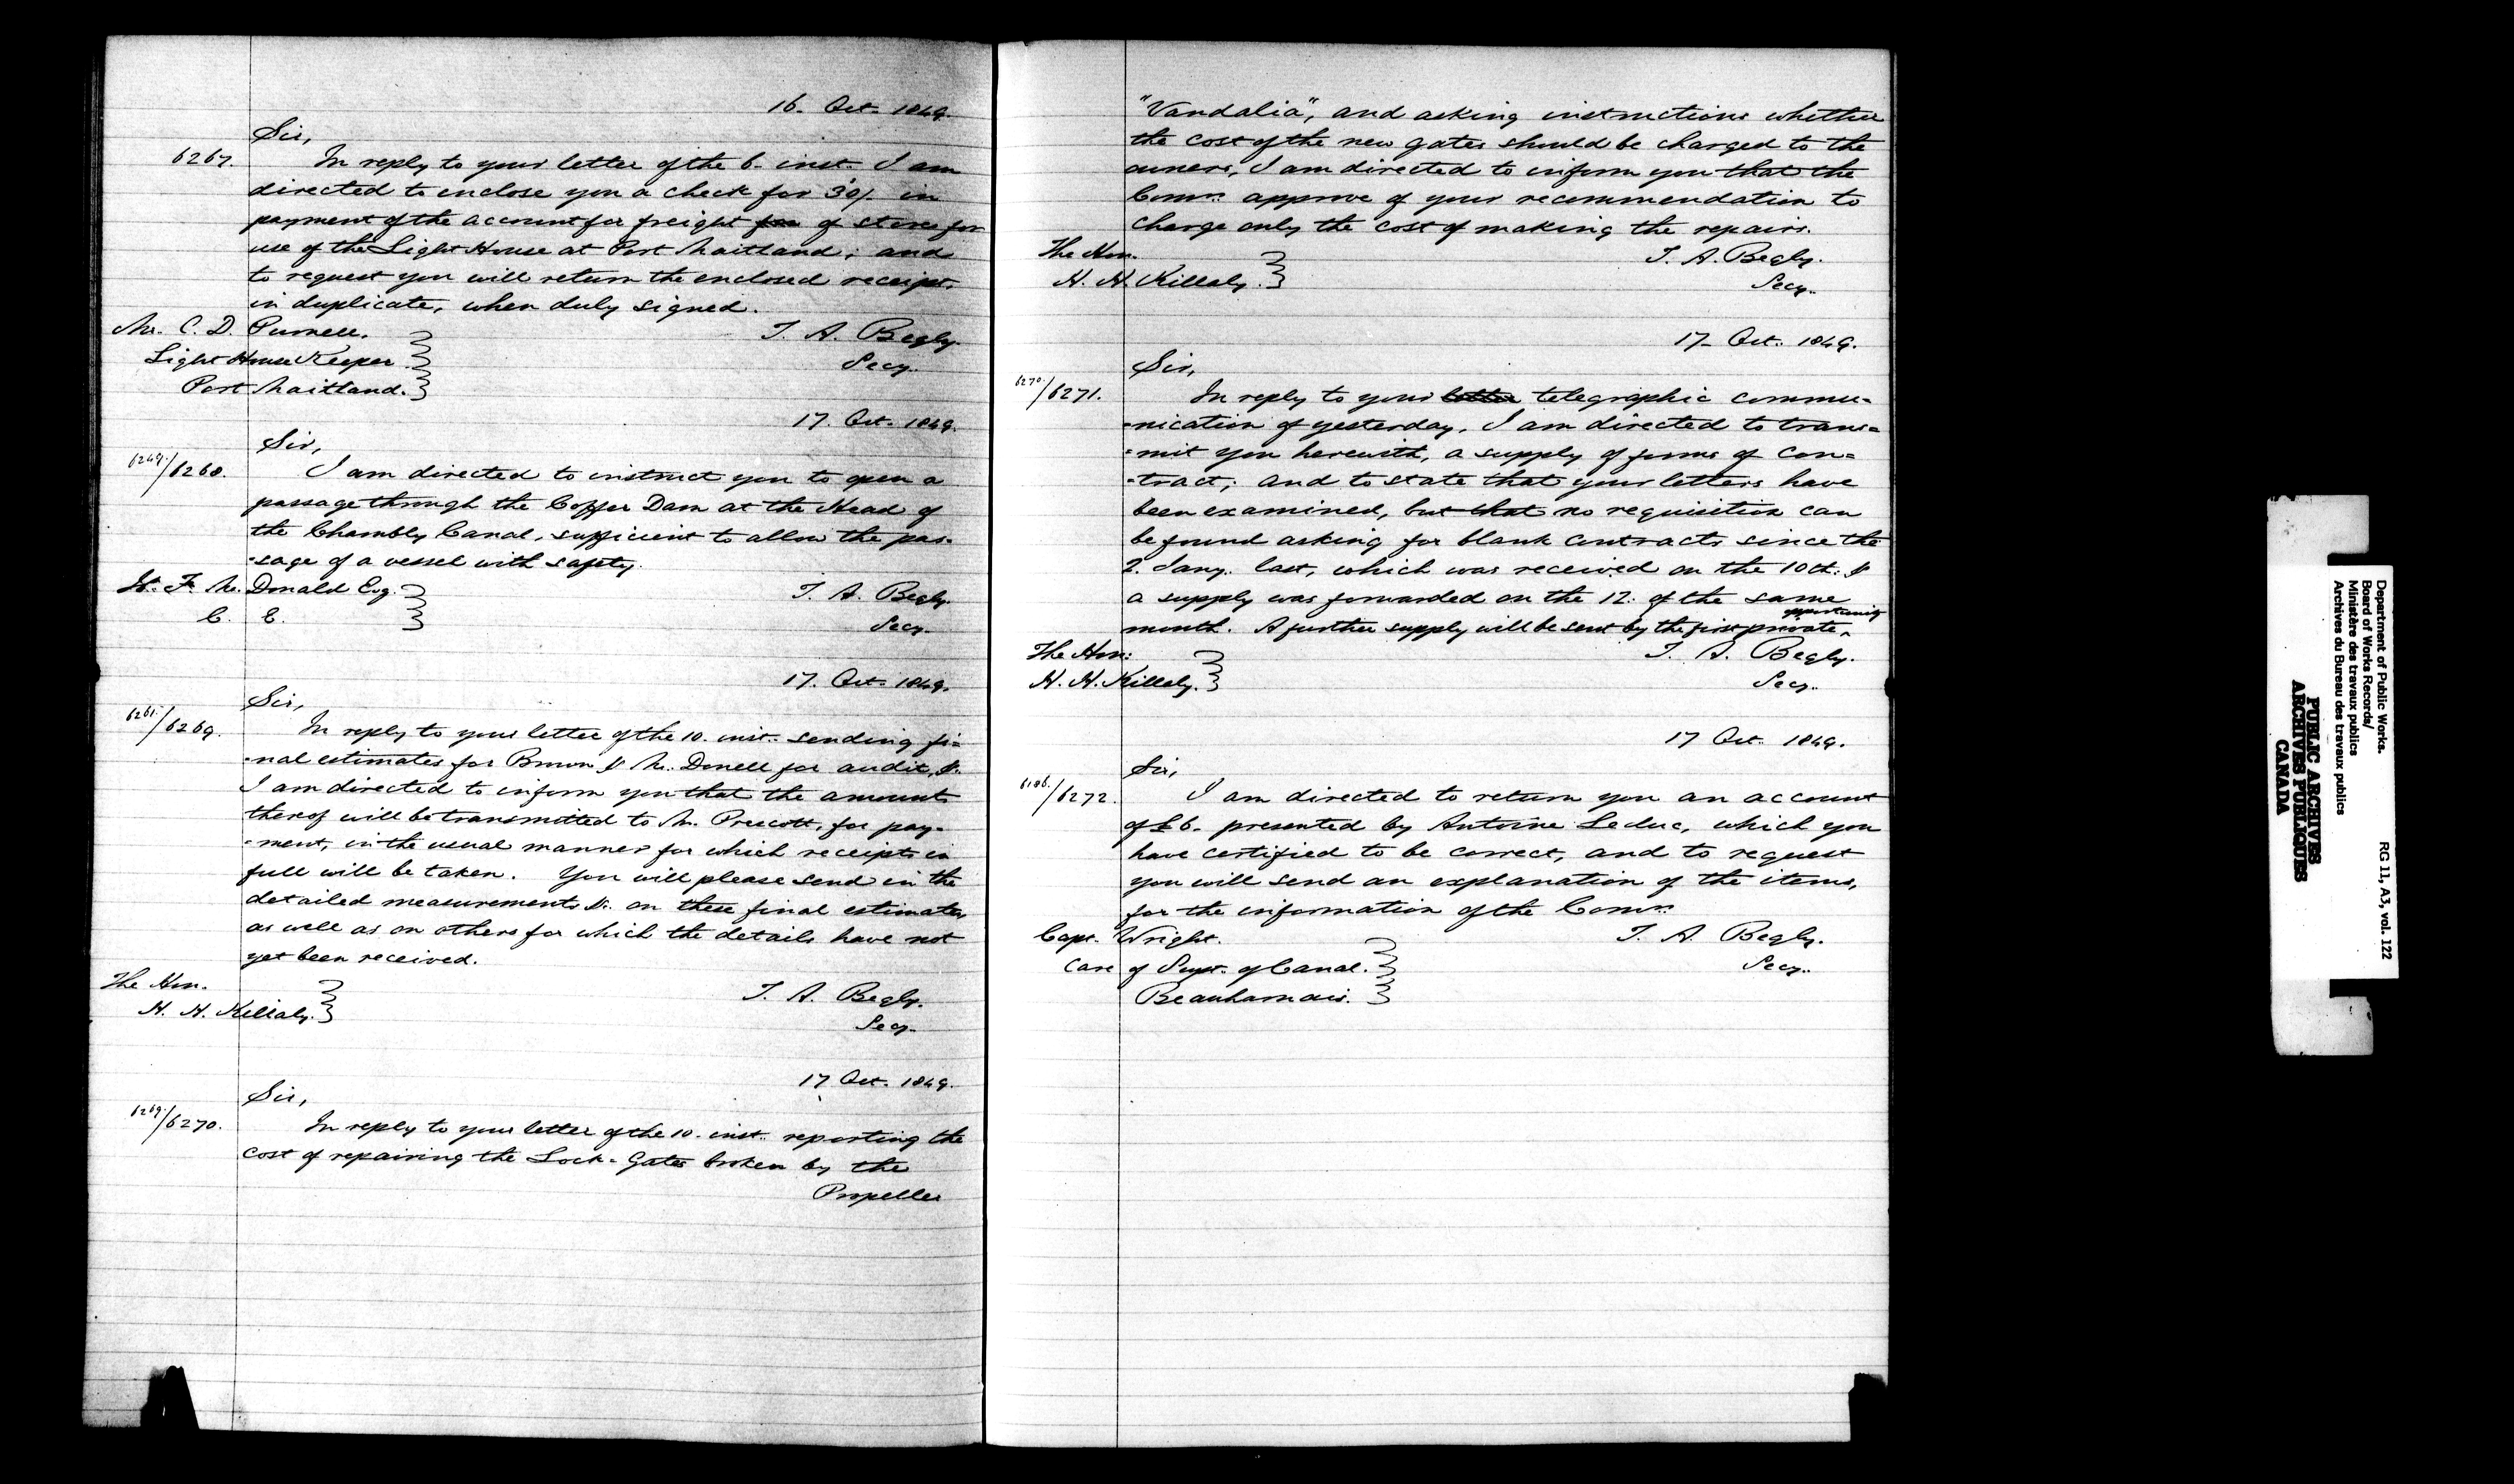 16. Oct. 1849.
Sir,
6267. In reply to your letter of the 6. inst. I am
directed to enclose you a check for 30/. in
payment of the account for freight for of stores for
use of the Light House at Port Maitland; and
to request you will return the enclosed receipt
in duplicate, when duly signed.
Mr. C. D. Purnell.
T. A. Begly.
Light House Keeper
Secy.
Port Maitland.
17. Oct. 1849.
Sir,
6249./6268. I am directed to instruct you to open a
passage through the Coffer Dam at the Head of
the Chambly Canal, sufficient to allow the pas-
-sage of a vessel with safety.
Mc. Donald Esq.
T. A. Begly.
C. E.
Secy.
17. Oct. 1849.
Sir,
6261./6269. In reply to your letter of the 10. inst. sending fi=
-nal estimates for Brown & Mc. Donell for audit, &c.
I am directed to inform you that the amounts
therof will be transmitted to Mr. Prescott, for pay-
-ment, in the usual manner for which receipts in
full will be taken. You will please send in the
detailed measurements &c. on these final estimates,
as well as on others for which the details have not
yet been received.
The Hon.
T. A. Begly.
H. H. Killaly.
Secy.
17 Oct. 1849.
Sir,
6269./6270. In reply to your letter of the 10. inst. reporting the
cost of repairing the Lock-Gates broken by the
Propeller
"Vandalia", and asking instructions whether
the cost of the new gates should be charged to the
owners, I am directed to inform you that the
Comrs. approve of your recommendation to
charge only the cost of making the repairs.
The Hon.
T. A. Begly.
H. H. Killaly.
Secy.
17. Oct. 1849.
Sir,
6270./6271. In reply to your letter telegraphic commu=
-nication of yesterday, I am directed to trans=
-mit you herewith, a supply of forms of con=
-tract; and to state that your letters have
been examined, but that no requisition can
be found asking for blank contracts since the
2. Jany. last, which was received on the 10th. &
a supply was forwarded on the 12. of the same
month. A further supply will be sent by the first private opportunity
The Hon:
T. A. Begly.
H. H. Killaly.
Secy.
17 Oct. 1849.
Sir,
6186./6272. I am directed to return you an account
of £6. presented by Antoine Leduc, which you
have certified to be correct, and to request
you will send an explanation of the items,
for the information of the Comrs.
Capt. Wright.
T. A. Begly.
Care of Supt. of Canal.
Secy.
Beauharnois.
Department of Public Works.
Board of Works Records/
Ministère des travaux publics
Archives du Bureau des travaux publics
RG 11, A3, vol. 122
PUBLIC ARCHIVES
ARCHIVES PUBLIQUES
CANADA